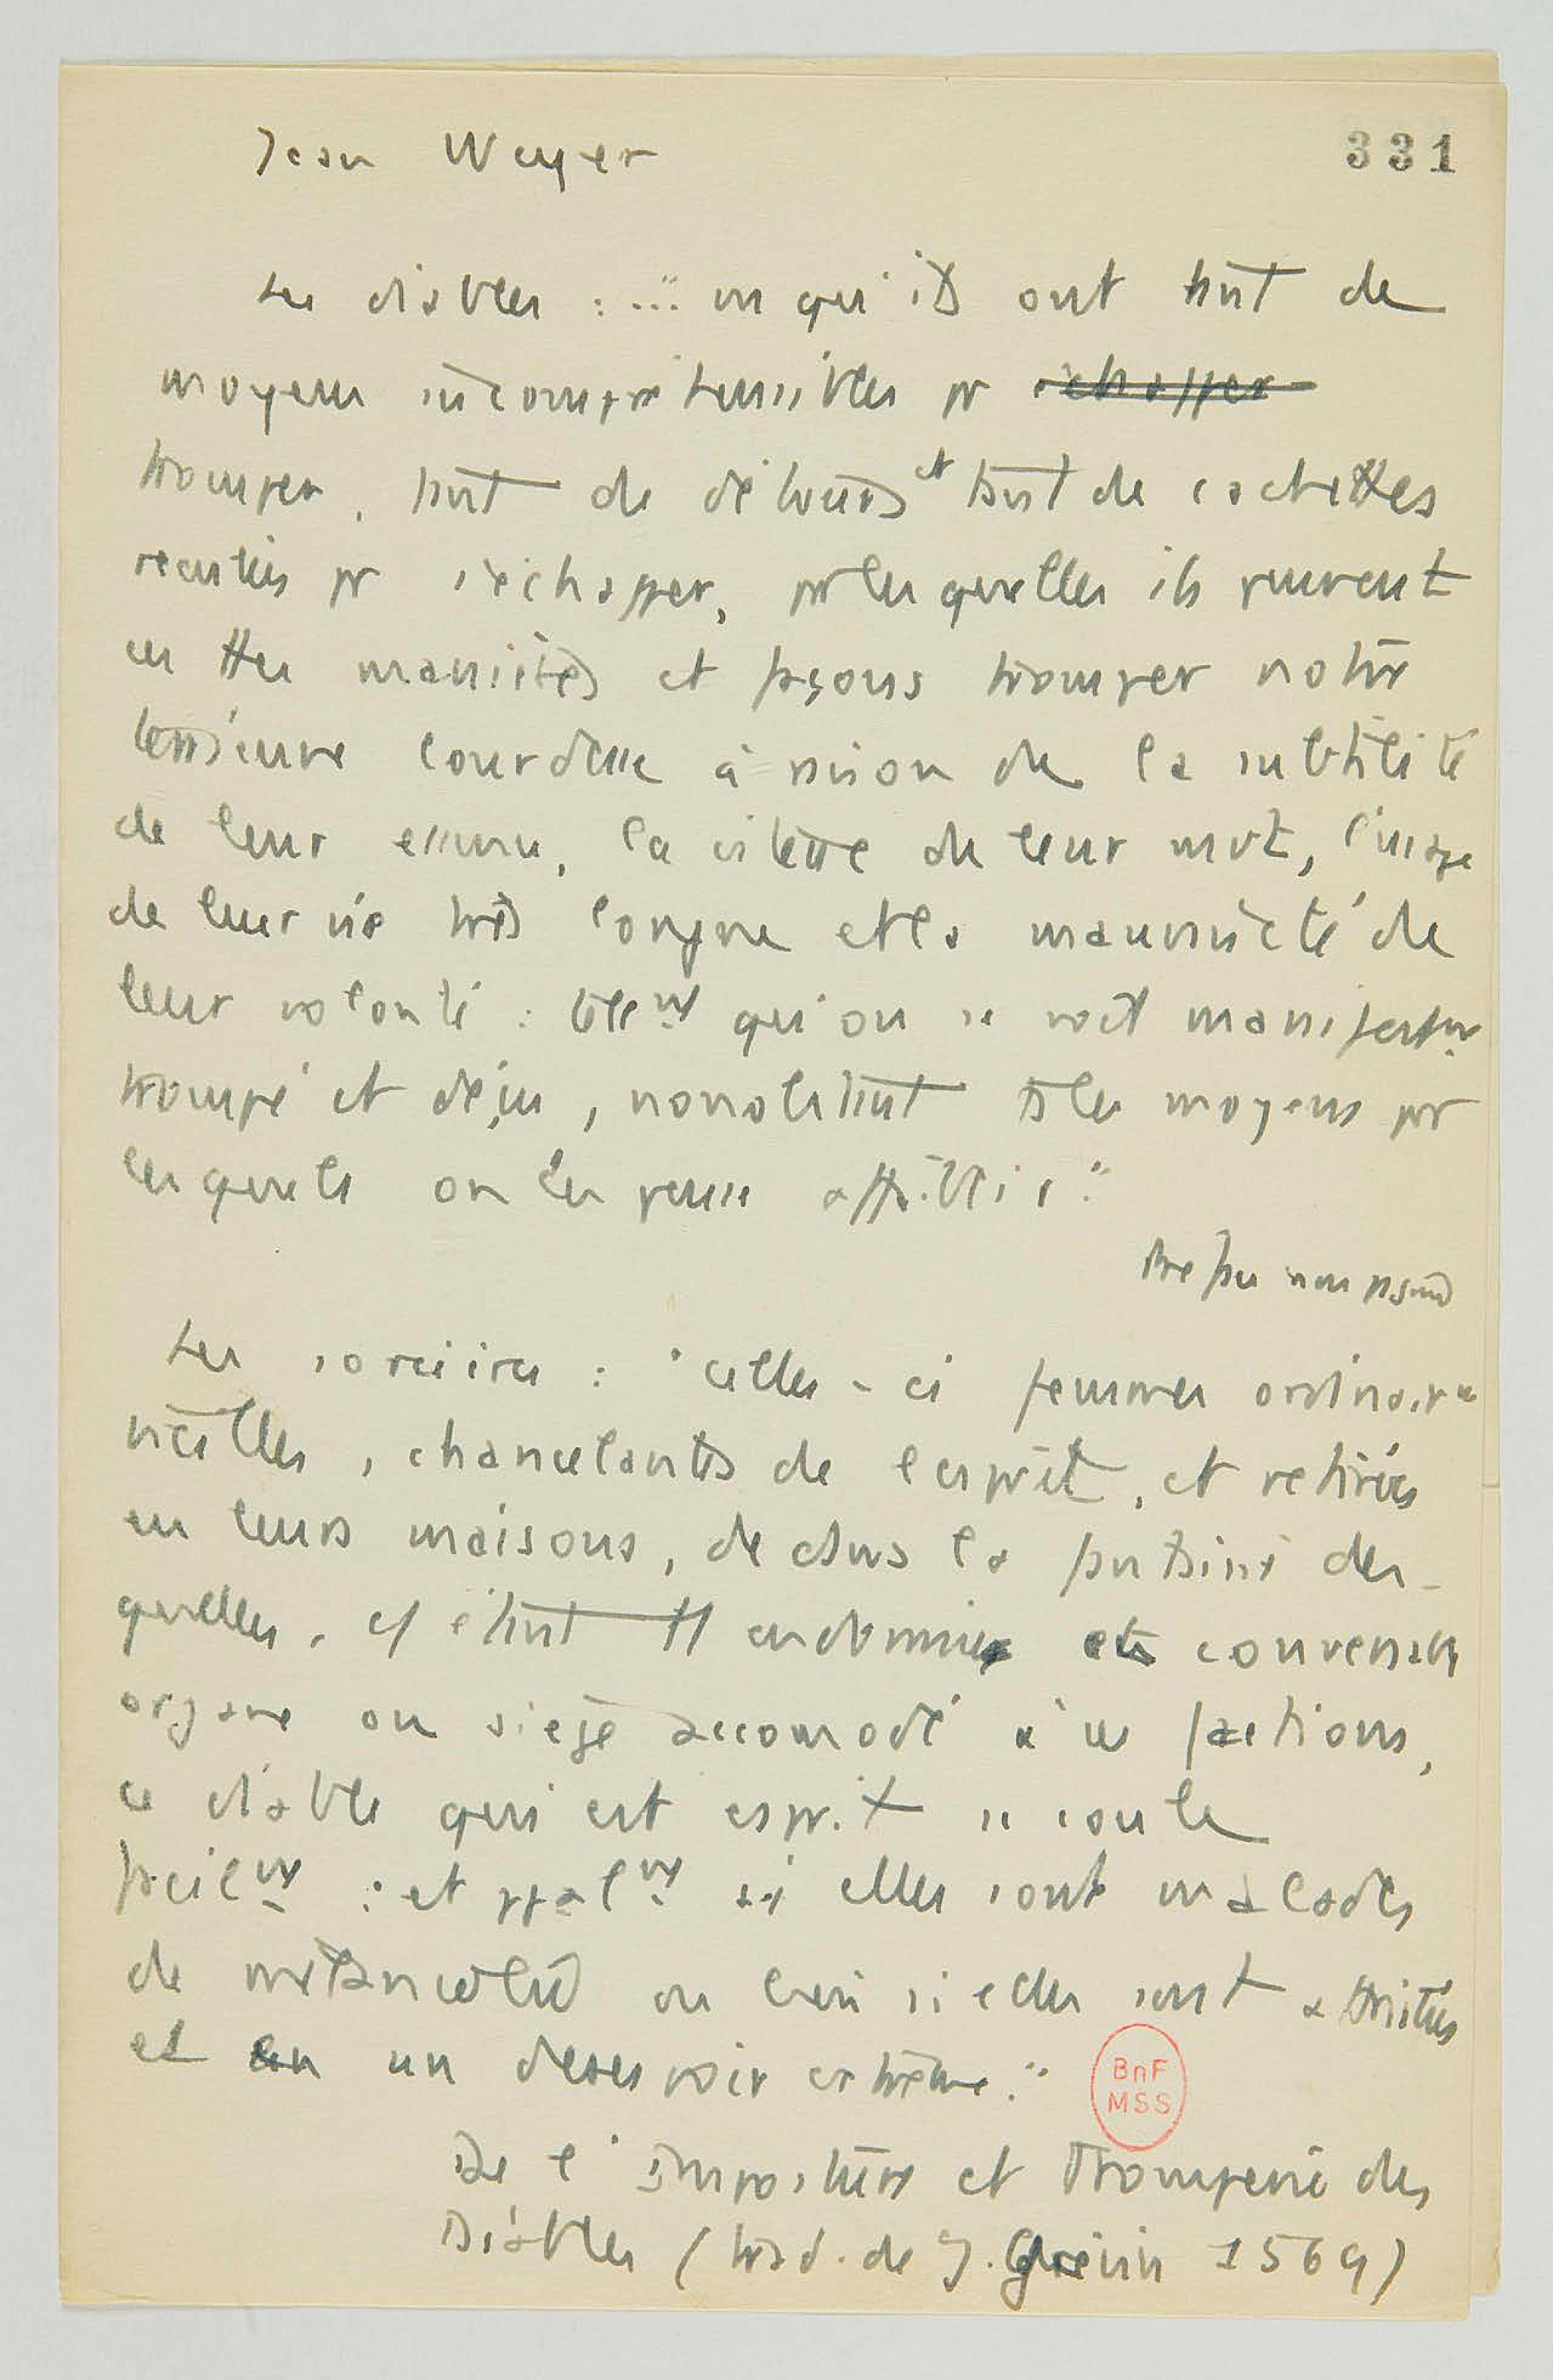 Jean Weyer
331
Les diables : "... vu qu'ils ont tant de
moyens incompréhensibles pr échapper
tromper, tant de détours et tant de cachettes
reculées pr s'échapper, par lesquelles ils peuvent
en ttes manières et façons tromper notre
lourdesse à raison de la subtilité
de leur essence, la vitesse de leur mvt, l'usage
de leur vie très longue et la mauvaiseté de
leur volonté : tellemt qu'on se voit manifestmt
trompé et déçu, nonobstant ts les moyens par
lesquels on les pense affaiblir."
Préface non paginée
Les sorcières : "celles-ci femmes ordinairmt
vieilles, chancelantes de l'esprit, et retirées
en leurs maisons, dedans la fantaisie des-
quelles, cf étant tt endommagé et convenable
organe ou siège accomodé à ces factions,
ce diable qui est esprit se coule
facilmt : et ppalmt si elles sont malades
de mélancolie ou bien si elles sont attristées
et en un desespoir extrême."
De l'Imposture et Tromperie des
Diables (trad. de J. Grévin 1569)
BnF
MSS